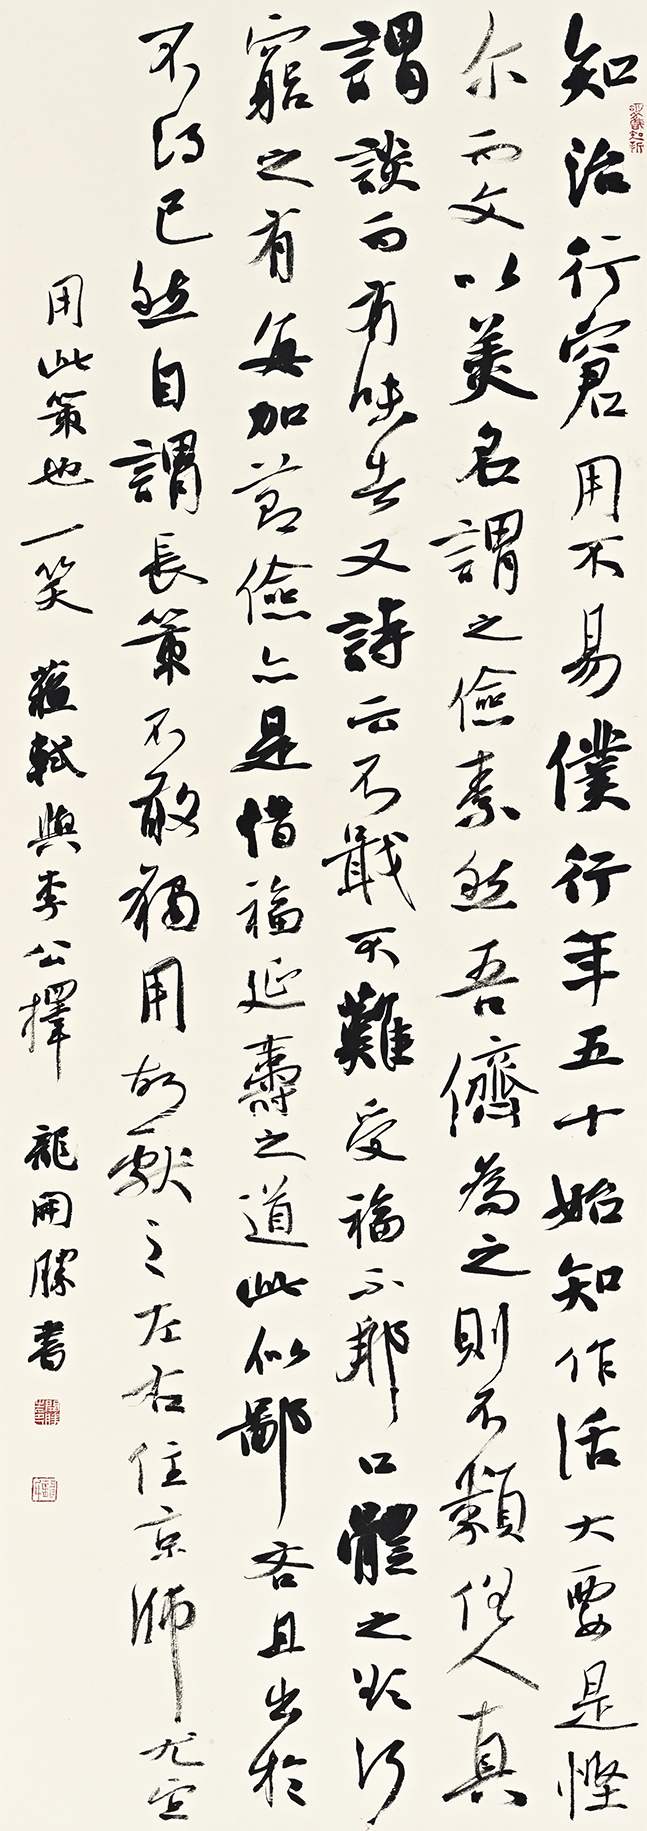 知治行窘用不易僕行年五十始知作活大要是慳
尔而文以美名謂之儉素然吾儕為之則不類俗人真
謂談而有味者又詩云不戢不難受福不那口體之欲何
窮之有每加節儉亦是惜福延壽之道此似鄙吝且出於
不得已然自謂長策不敢獨用故獻之左右住京師尤宜
用此策也一笑 蘇軾與李公擇 龍開勝書